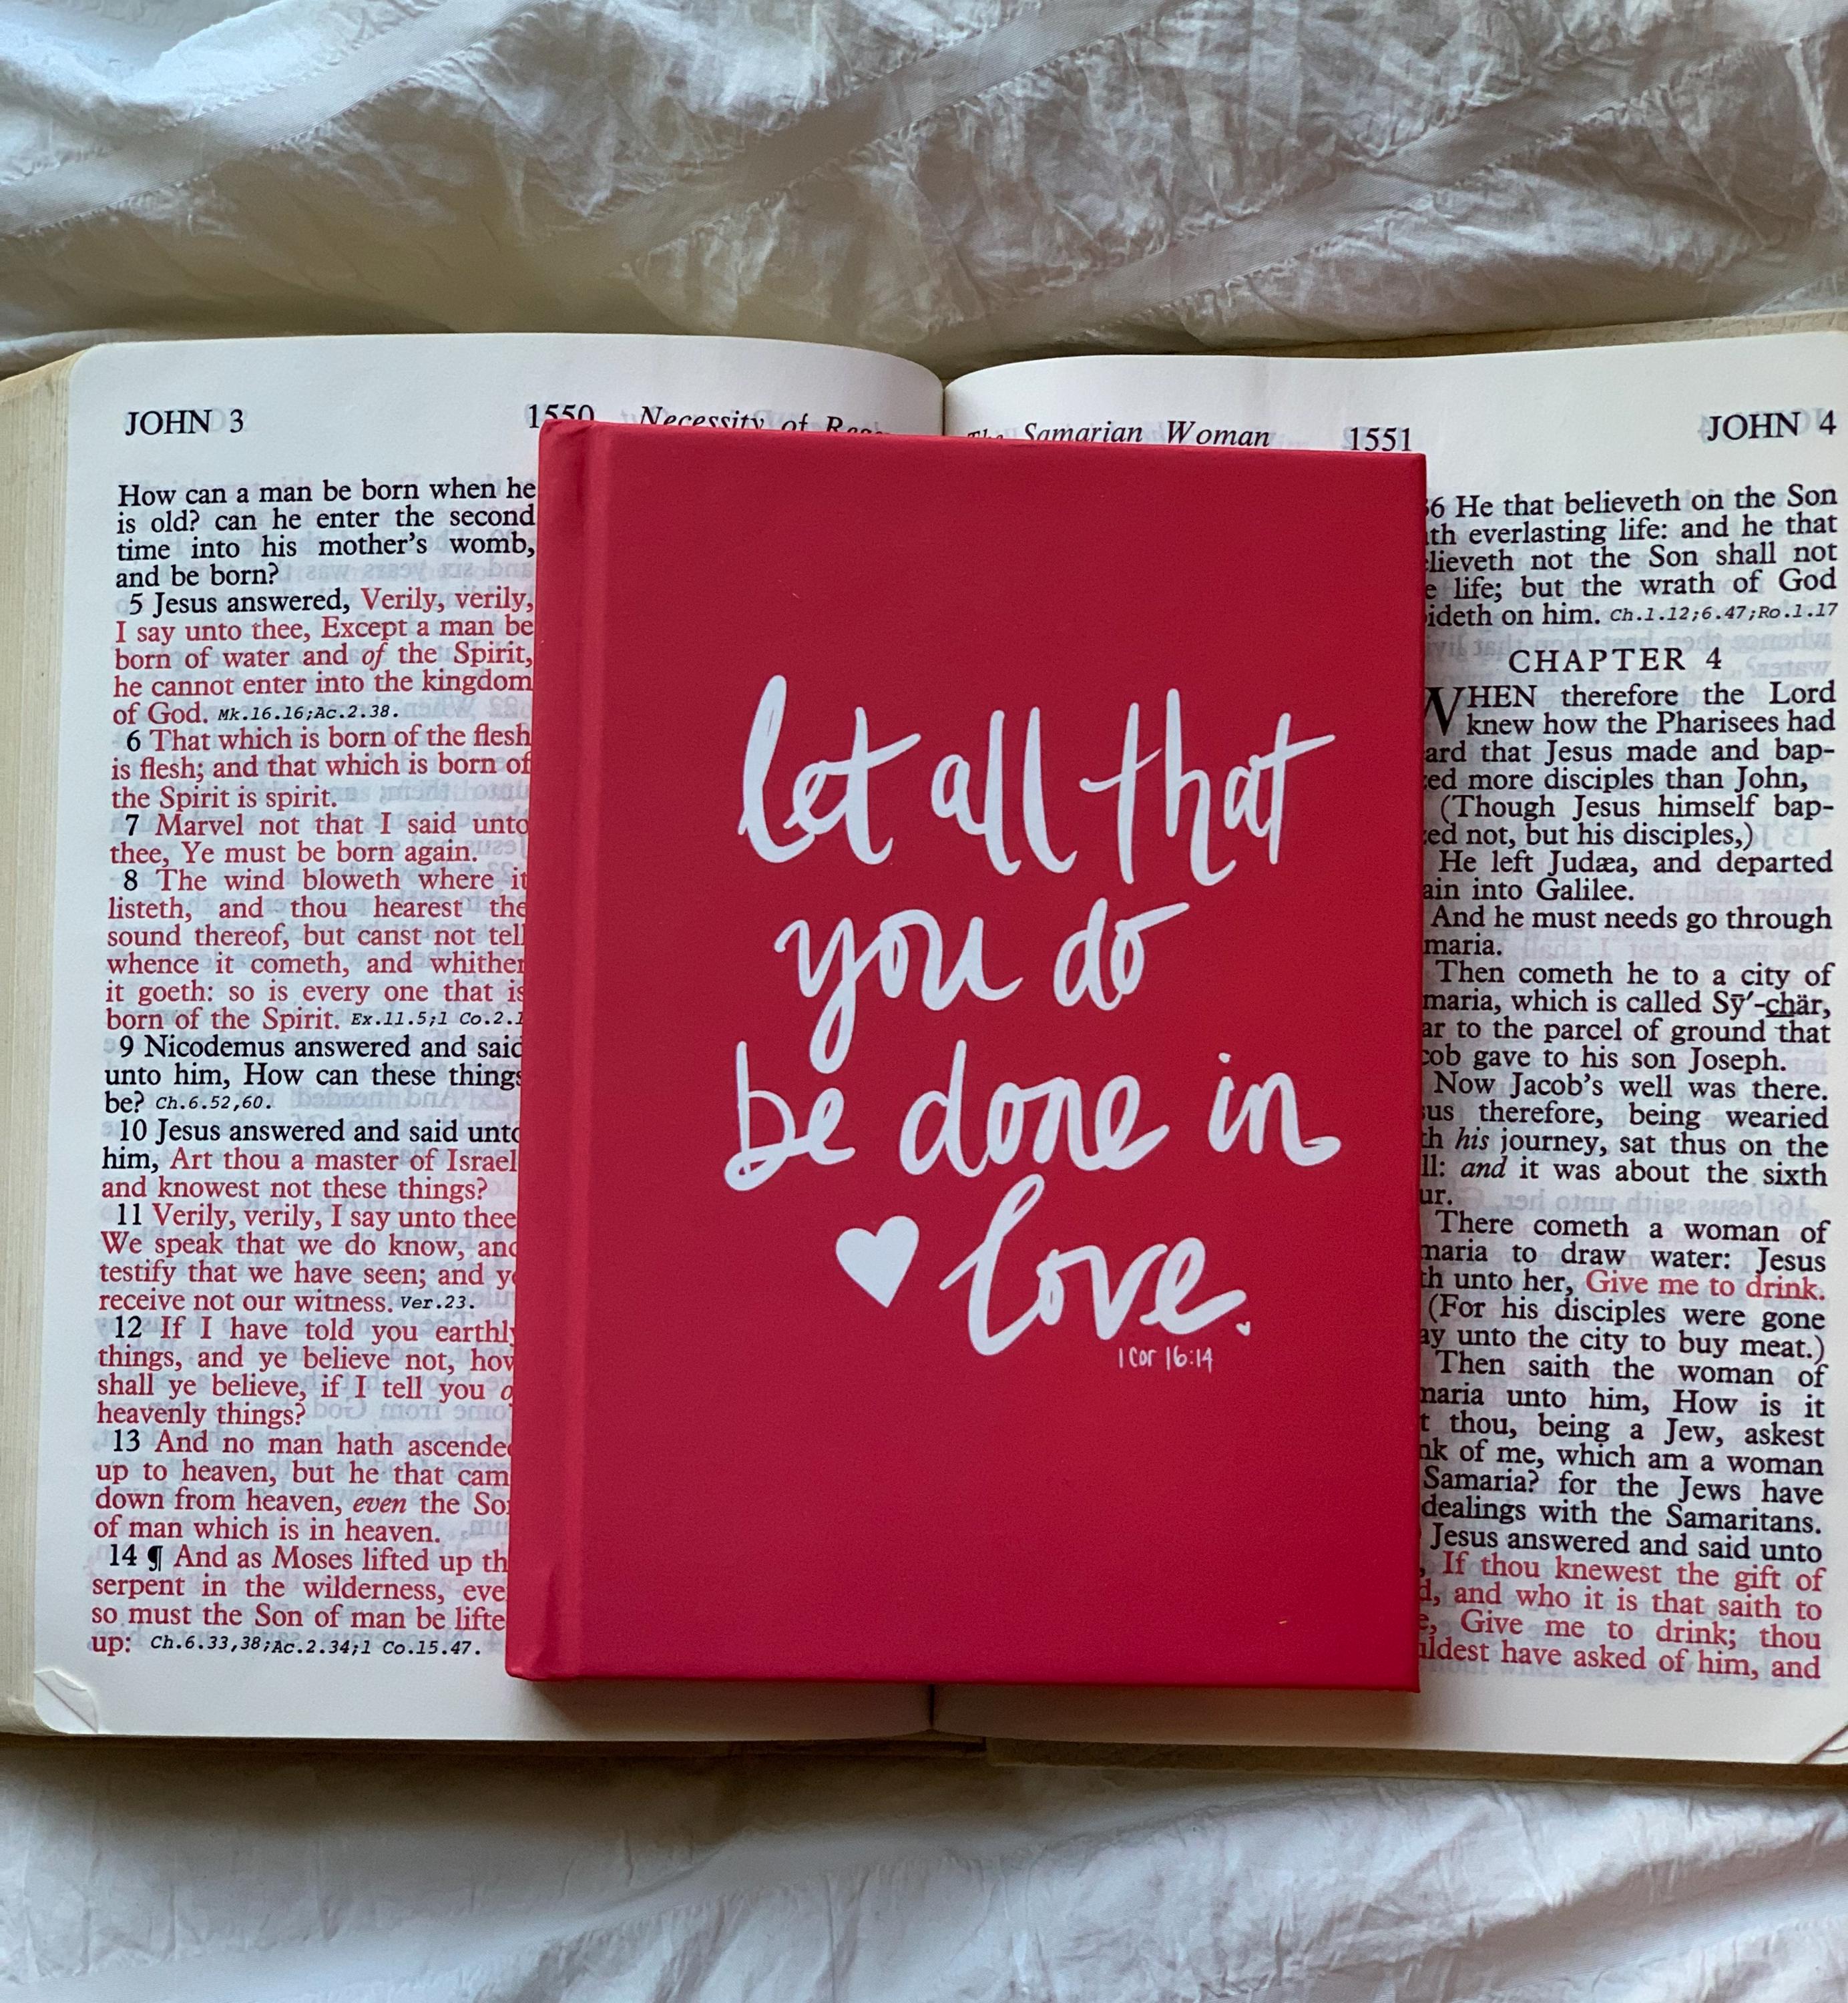 JOHN 3
1550 Necessity of
How can a man be born when he
is old? can he enter the second
time into his mother's womb,
and be born?
5 Jesus answered, Verily, verily,
I say unto thee, Except a man be
born of water and of the Spirit,
he cannot enter into the kingdom
of God. Mk.16.16;Ac.2.38.
6 That which is born of the flesh
is flesh; and that which is born of
the Spirit is spirit.
7 Marvel not that I said unto
thee, Ye must be born again.
8 The wind bloweth where it
listeth, and thou hearest the
sound thereof, but canst not tell
whence it cometh, and whither
it goeth: so is every one that is
born of the Spirit. Ex.11.5;1 Co.2.1
9 Nicodemus answered and said
unto him, How can these things
be? Ch.6.52,60.
10 Jesus answered and said unto
him, Art thou a master of Israel
and knowest not these things?
11 Verily, verily, I say unto thee
We speak that we do know, and
testify that we have seen; and y
receive not our witness. Ver.23.
12 If I have told you earthly
things, and ye believe not, how
shall ye believe, if I tell you o
heavenly things?
13 And no man hath ascended
up to heaven, but he that cam
down from heaven, even the So
of man which is in heaven.
14 ¶ And as Moses lifted up th
serpent in the wilderness, eve
so must the Son of man be lifte
up: Ch.6.33,38;Ac.2.34;1 Co.15.47.
let all that
you do
be done in
♥ love.
1 Cor 16:14
Samarian Woman 1551
JOHN 4
6 He that believeth on the Son
th everlasting life: and he that
lieveth not the Son shall not
e life; but the wrath of God
ideth on him. Ch.1.12;6.47;Ro.1.17
CHAPTER 4
WHEN therefore the Lord
knew how the Pharisees had
ard that Jesus made and bap-
ed more disciples than John,
(Though Jesus himself bap-
ed not, but his disciples,)
He left Judæa, and departed
ain into Galilee.
And he must needs go through
maria.
Then cometh he to a city of
maria, which is called Sȳ′-chär,
ar to the parcel of ground that
cob gave to his son Joseph.
Now Jacob's well was there.
us therefore, being wearied
th his journey, sat thus on the
ll: and it was about the sixth
ur.
There cometh a woman of
maria to draw water: Jesus
th unto her, Give me to drink.
(For his disciples were gone
ay unto the city to buy meat.)
Then saith the woman of
maria unto him, How is it
t thou, being a Jew, askest
nk of me, which am a woman
Samaria? for the Jews have
dealings with the Samaritans.
Jesus answered and said unto
, If thou knewest the gift of
d, and who it is that saith to
e, Give me to drink; thou
uldest have asked of him, and